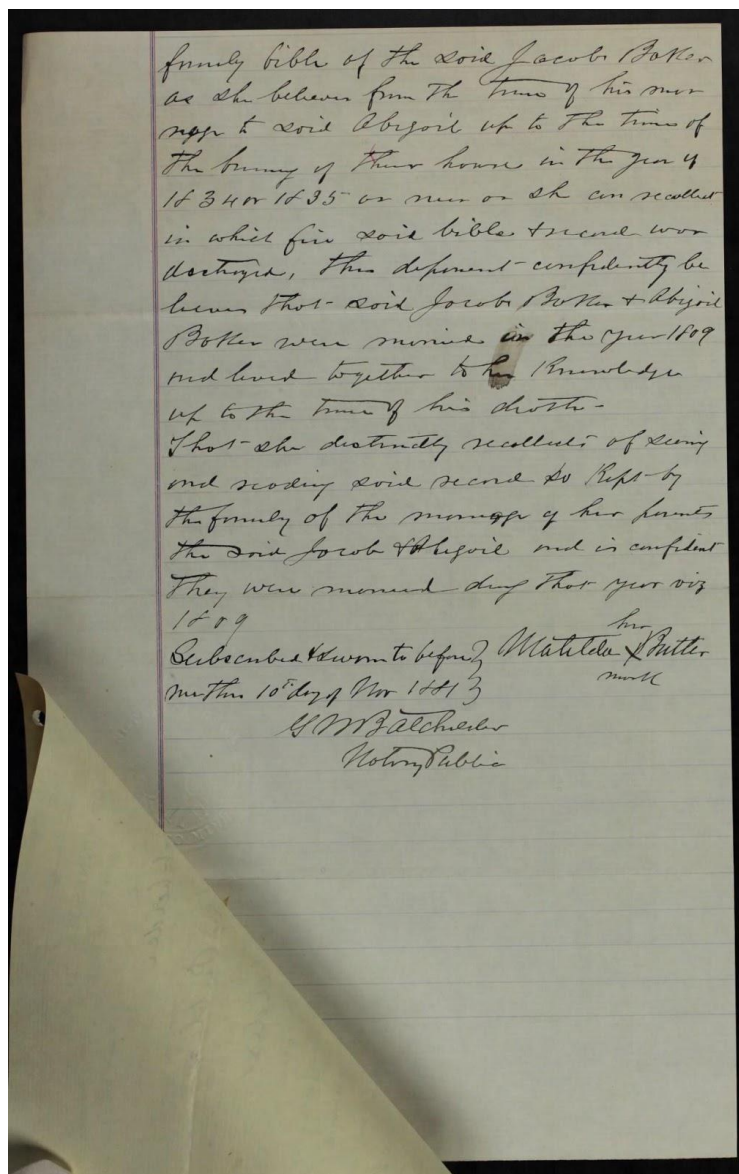 family bible of the said Jacob Baker
as she believes from the time of his mar
riage to said Abigail up to the time of
the burning of their house in the year of
1834 or 1835 as near as she can recollect
in which fire said bible & record was
destroyed, this deponent confidently be
lieves that said Jacob Baker & Abigail
Baker were married in the year 1809
and lived together to her Knowledge
up to the time of his death -
That she distinctly recollects of seeing
and reading said record so Kept by
the family of the marriage of her parents
the said Jacob & Abigail and is confident
they were married during that year viz
1809
Subscribed & sworn to before
me this 10th day of Nov 1881
her
Matilda X Butler
mark
G W Batchelder
Notary Public